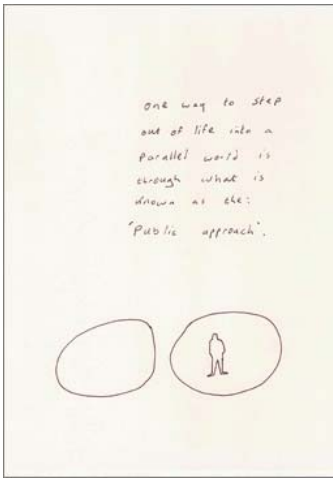 one way to step
out of life into a
parallel world is
through what is
known as the:
"Public approach".